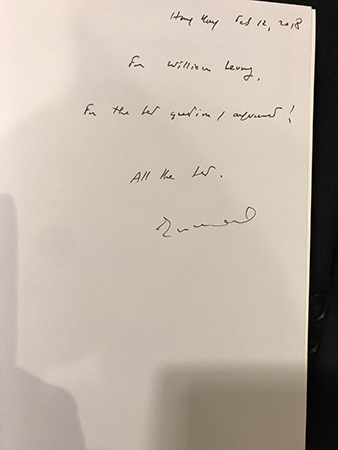 Hong Kong Feb 12, 2018
For William Leung,
For the best question / argument!
All the best.